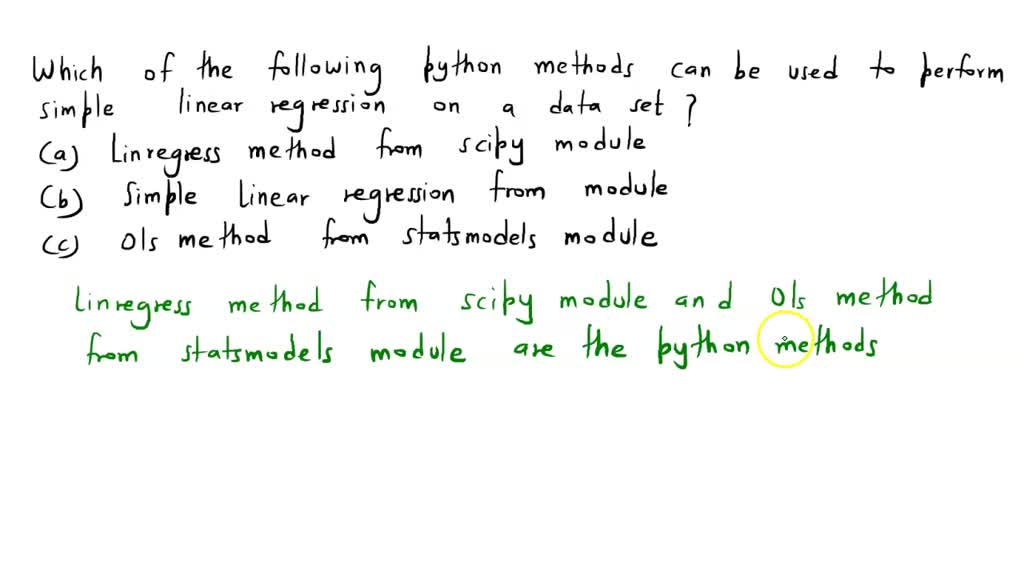 Which of the following python methods can be used to perform
simple linear regression on a data set ?
(a) Linregress method from scipy module
(b) Simple linear regression from module
(c) Ols method from statsmodels module
Linregress method from scipy module and Ols method
from statsmodels module are the python methods